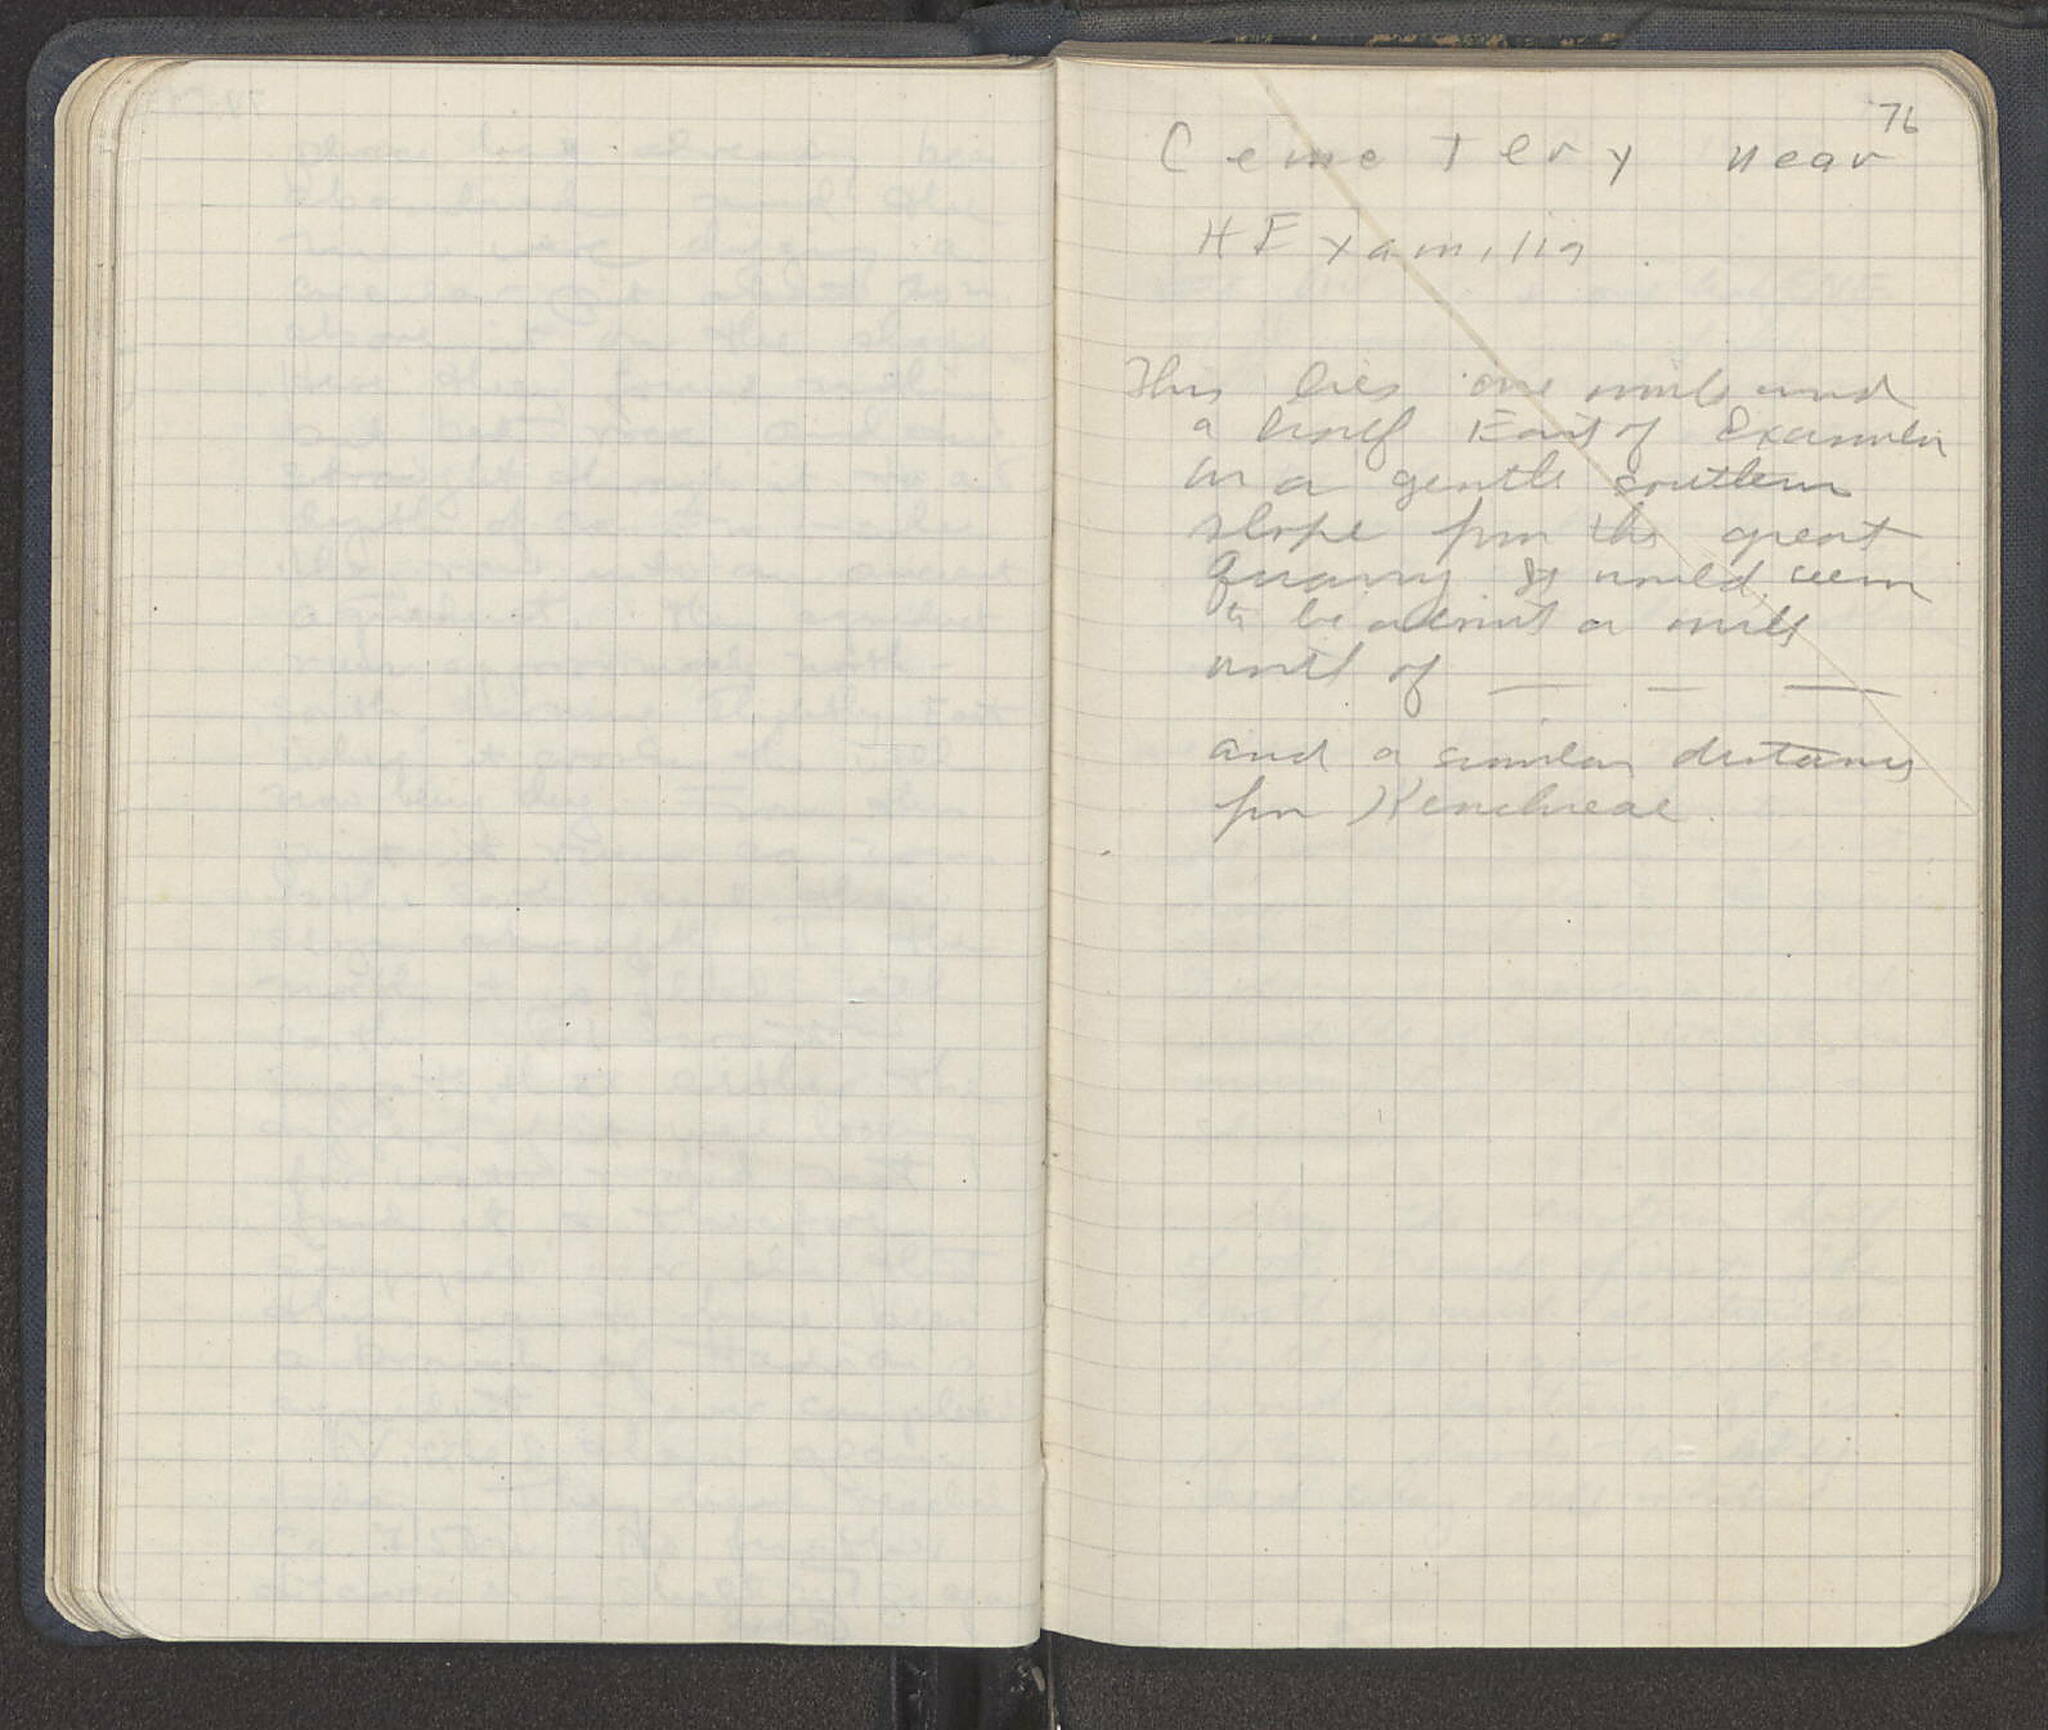 76
Cemetery near
HExamilia.
This lies one mile and
a half East of Examilia
on a gentle southern
slope from the great
Quarry & would seem
to be about a mile
north of — — —
and a similar distance
from Kenchreae.